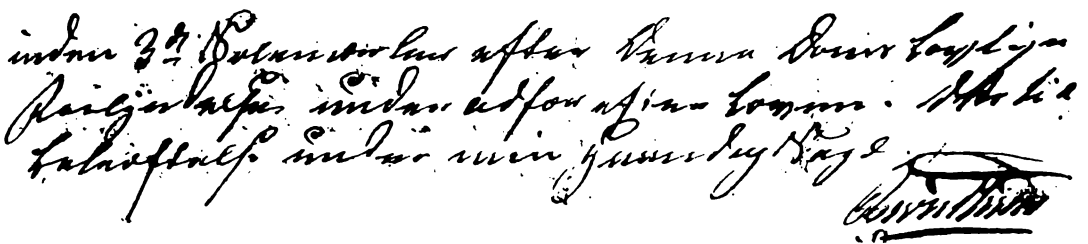 inden 3de Solemercker efter denne Doms lovlige
Forkyndelse under adfær efter Loven. Dets til
bekræftelse under min Haand og Segl